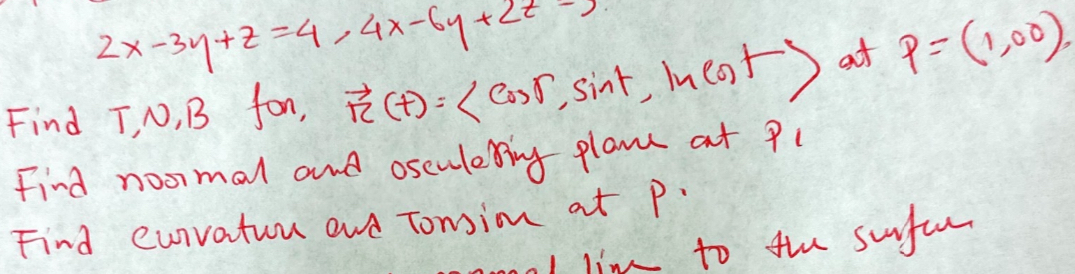 2x-3y+z=4, 4x-6y+2z
Find T,N,B for, r⃗(t)=<cost, sint, ln cost> at P=(1,0,0).
Find normal and osculating plane at P.
Find curvature and Torsion at P.
line to the surface